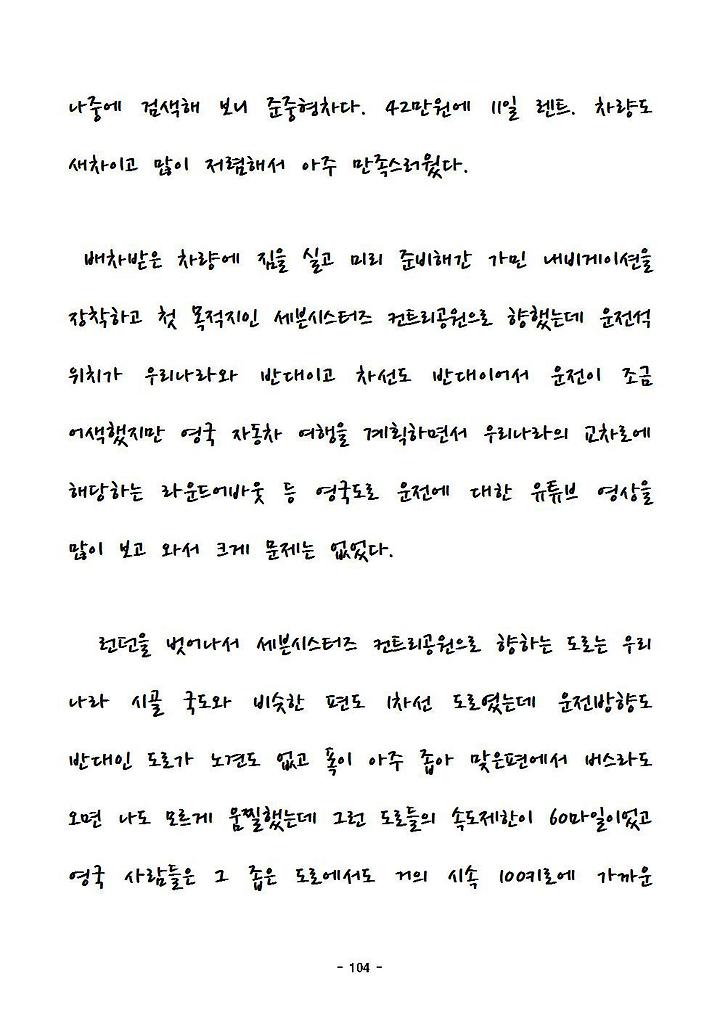 나중에 검색해 보니 준중형차다. 42만원에 11일 렌트. 차량도
새차이고 많이 저렴해서 아주 만족스러웠다.
배차받은 차량에 짐을 실고 미리 준비해간 가민 내비게이션을
장착하고 첫 목적지인 세븐시스터즈 컨트리공원으로 향했는데 운전석
위치가 우리나라와 반대이고 차선도 반대이어서 운전이 조금
어색했지만 영국 자동차 여행을 계획하면서 우리나라의 교차로에
해당하는 라운드어바웃 등 영국도로 운전에 대한 유튜브 영상을
많이 보고 와서 크게 문제는 없었다.
런던을 벗어나서 세븐시스터즈 컨트리공원으로 향하는 도로는 우리
나라 시골 국도와 비슷한 편도 1차선 도로였는데 운전방향도
반대인 도로가 노견도 없고 폭이 아주 좁아 맞은편에서 버스라도
오면 나도 모르게 움찔했는데 그런 도로들의 속도제한이 60마일이었고
영국 사람들은 그 좁은 도로에서도 거의 시속 100키로에 가까운
- 104 -